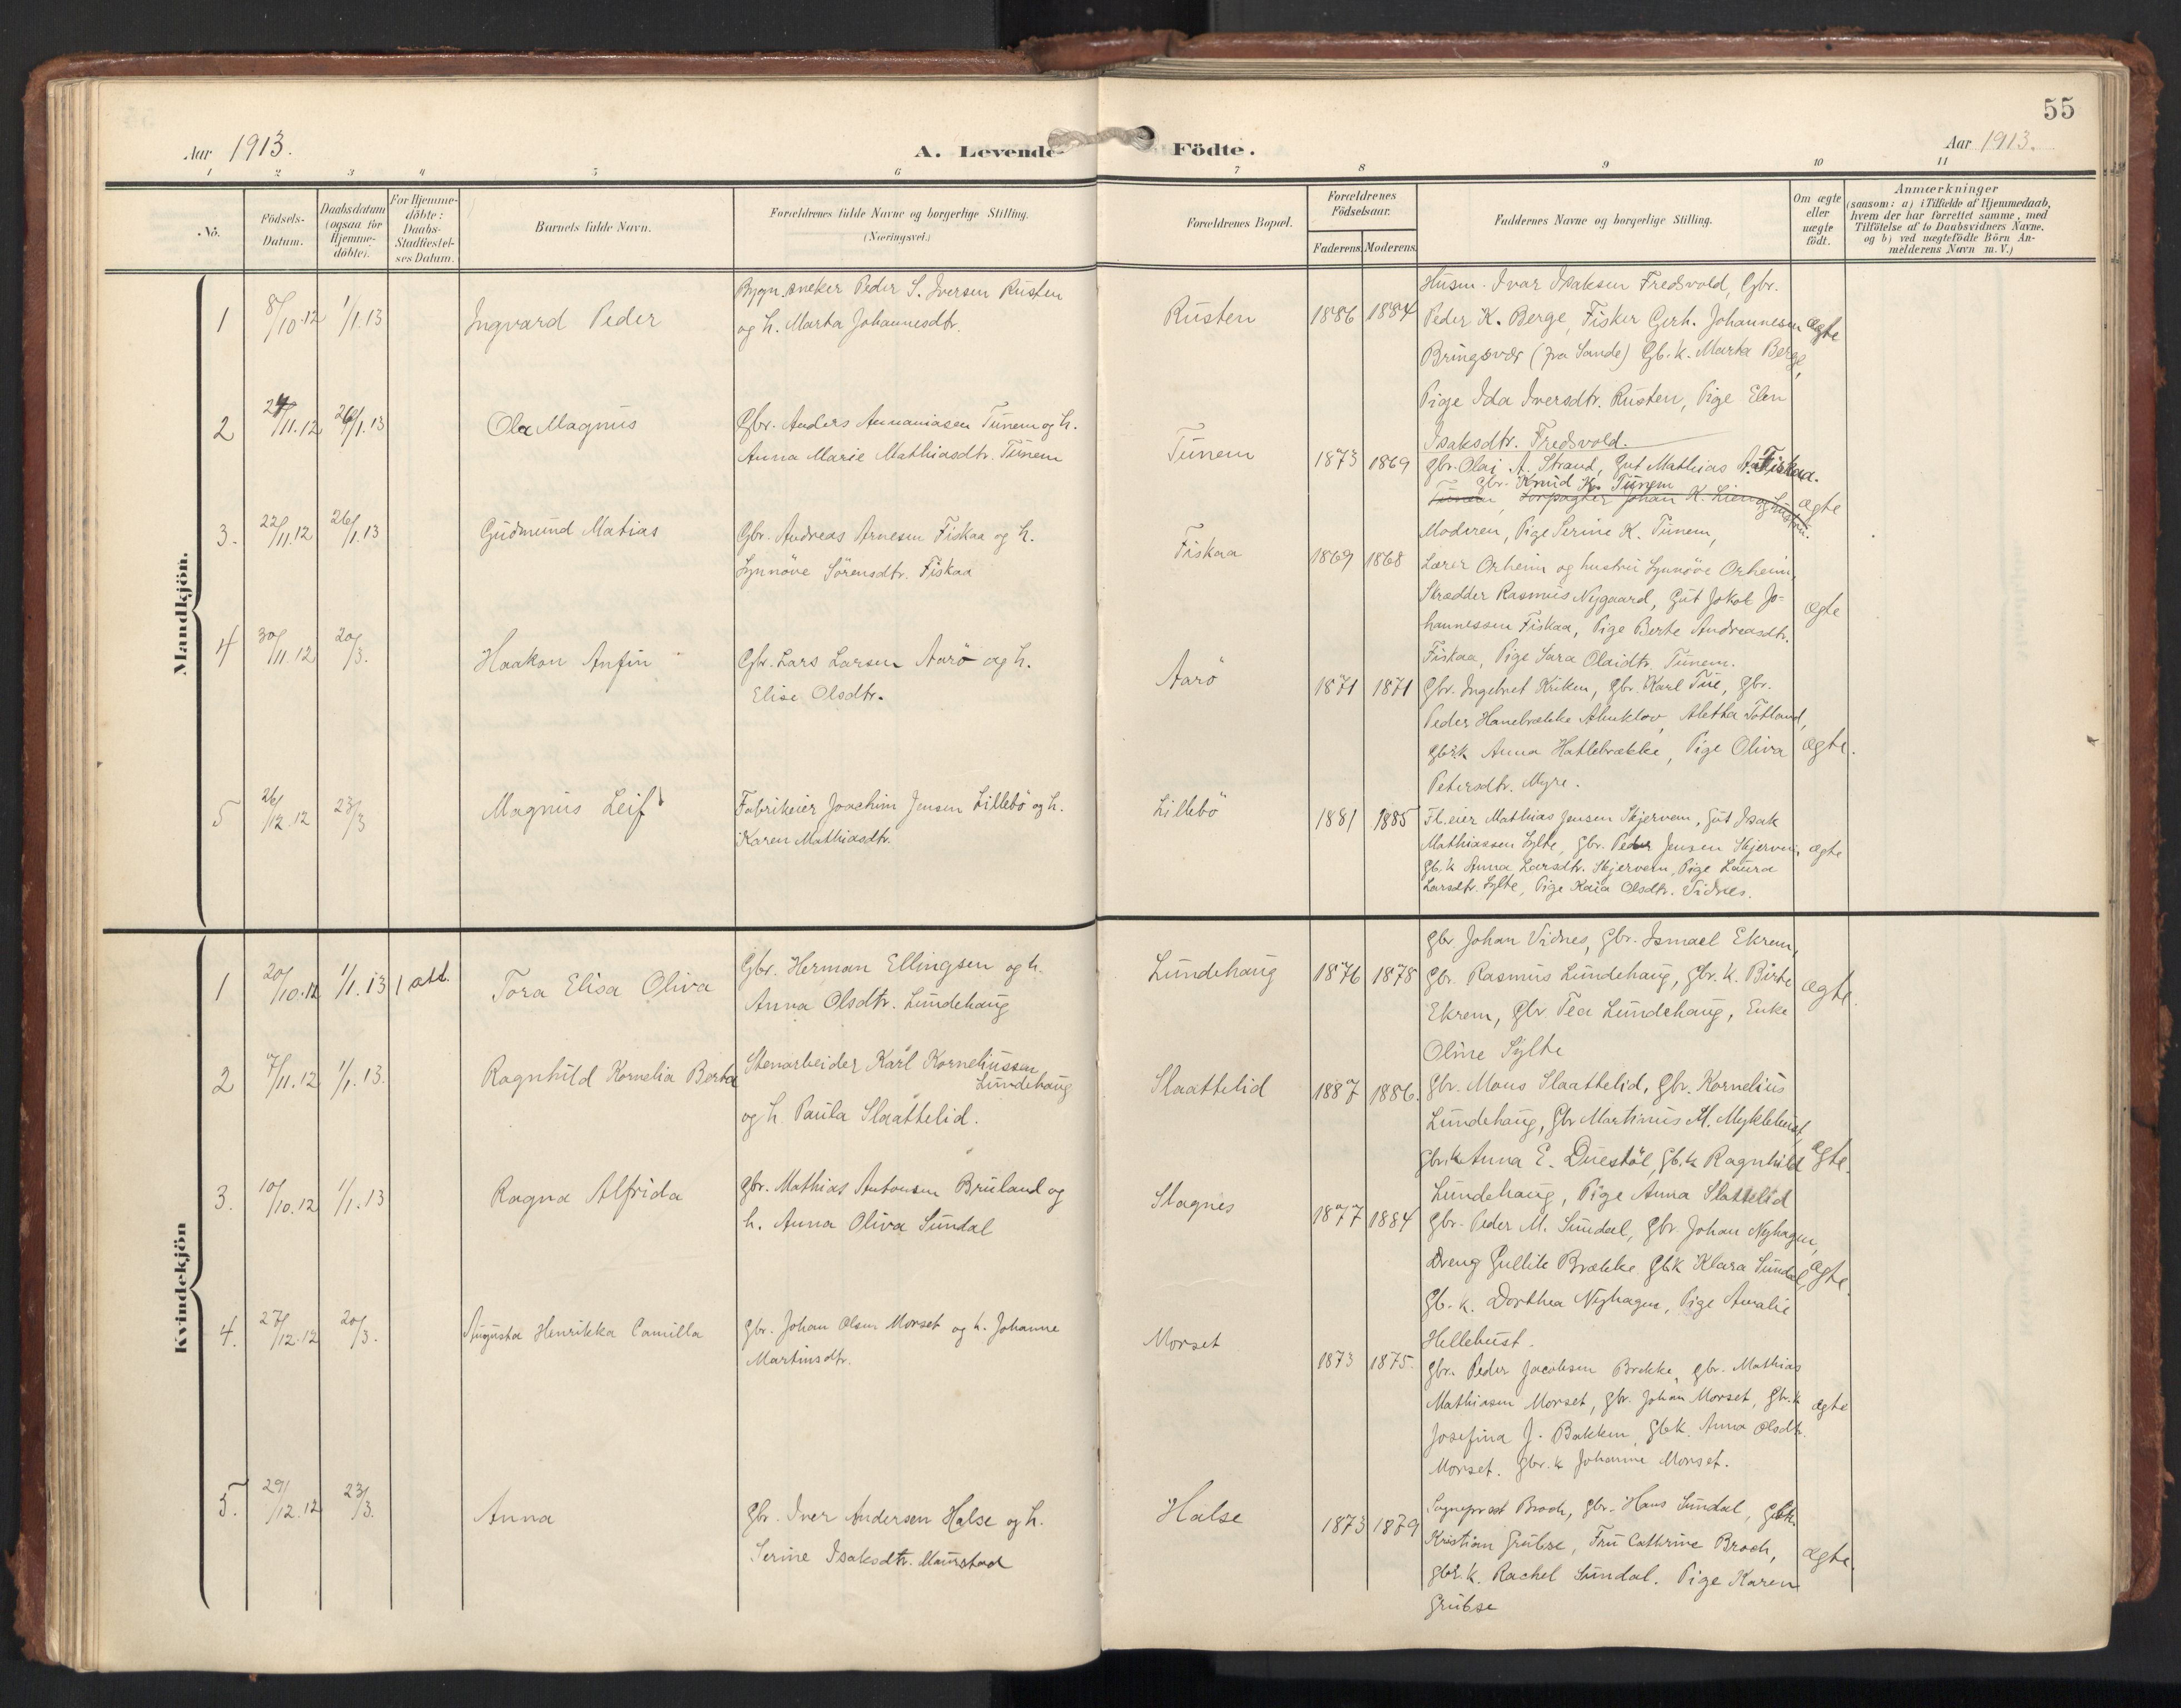 55
Aar 1913.
A. Levende Födte.
Aar 1913.
1 2 3 4 5 6 7 8 9 10 11
No.
Födsels-Datum.
Daabsdatum (ogsaa for Hjemme-döbte).
For Hjemme-döbte: Daabs-Stadfæstel-ses Datum.
Barnets fulde Navn.
Forældrenes fulde Navne og borgerlige Stilling. (Næringsvei.)
Forældrenes Bopæl.
Forældrenes Födselsaar.
Faderens. Moderens.
Faddernes Navne og borgerlige Stilling.
Om ægte eller uægte födt.
Anmærkninger
(saasom: a) i Tilfælde af Hjemmedaab, hvem der har forrettet samme, med Tilföielse af to Daabsvidners Navne, og b) ved uægtefödte Börn An-melderens Navn m. V.)
Mandkjön.
1 8/10.12 1/1.13 Ingvard Peder
Bygn.sneker Peder S. Iversen Rusten
og h. Marta Johannesdtr.
Rusten 1886 1884
Husm. Ivar Isaksen Fredsvold, Gbr.
Peder K. Berge, Fisker Gerh. Johannesen
Bringsvor (fra Sande) Gb.k. Marta Berge,
Pige Ida Iversdtr. Rusten, Pige Elen
Isaksdtr. Fredsvold.
ægte
2 24/11.12 26/1.13 Ola Magnus
Gbr. Anders Annaniasen Tunem og h.
Anna Marie Mathiasdtr. Tunem
Tunem 1873 1869
Gbr. Olai A. Strand, Gut Mathias A. Fiskaa.
Gbr. Knud K. Tunem
Tunem, Forpagter Johan K. Lien og hustru.
Moderen, Pige Serine K. Tunem,
ægte
3. 22/11.12 26/1.13 Gudmund Matias
Gbr. Andreas Arnesen Fiskaa og h.
Synnöve Sörensdtr. Fiskaa
Fiskaa 1869 1868
Lærer Orheim og hustru Synnöve Orheim,
Skrædder Rasmus Nygaard, Gut Jakob Jo-
hannessen Fiskaa, Pige Berte Andreasdtr.
Fiskaa, Pige Sara Olaidtr. Tunem.
ægte
4 30/11.12 20/3. Haakon Anfin
Gbr. Lars Larsen Aarö og h.
Elise Olsdtr.
Aarö 1871 1871
Gbr. Ingebret Kriken, Gbr. Karl Tue, Gbr.
Peder Hanebrække Aletha Totland,
Gbr.k Anna Hatlebrække, Pige Oliva
Petersdtr. Myre.
ægte.
5 26/12.12 23/3 Magnus Leif
Fabrikeier Joachim Jensen Lillebö og h.
Karen Mathiasdtr.
Lillebö 1881 1885
Fb.eier Mathias Jensen Skjervem, Gut Isak
Mathiassen Sylte, Gbr. Peder Jensen Skjerven,
Gb.k Anna Larsdtr. Skjervem, Pige Laura
Larsdtr. Sylte, Pige Kaia Olsdtr. Vidnes.
ægte
Kvindekjön
1 20/10.12 1/1.13 1 att. Tora Elisa Oliva
Gbr. Herman Ellingsen og h.
Anna Olsdtr. Lundehaug
Lundehaug 1876 1878
Gbr. Johan Vidnes, Gbr. Ismael Ekrem,
Gbr. Rasmus Lundehaug, Gbr. k. Birte
Ekrem, Gbr Tea Lundehaug, Enke
Oline Sylte
ægte.
2 7/11.12 1/1.13. Ragnhild Kornelia Berta
Stenarbeider Karl Korneliussen
Lundehaug
og h. Paula Slaattelid.
Slaattelid 1887 1886.
Gbr. Mons Slaattelid, Gbr. Kornelius
Lundehaug, Gbr Martinus M. Myklebust,
Gbr.k Anna E. Duestöl, Gb.k Ragnhild
Lundehaug, Pige Anna Slattelid
ægte.
3. 10/10.12 1/1.13 Ragna Alfrida
Gbr. Mathias Antonsen Bruland og
h. Anna Oliva Sundal
Slagnes 1877 1884
Gbr. Peder M. Sundal, Gbr. Johan Nyhagen,
Dreng Gullik Brække, Gbk Klara Sundal,
Gb.k. Dorthea Nyhagen, Pige Amalie
Hellebust.
ægte.
4. 27/12.12 20/3. Augusta Henrikka Camilla
Gbr. Johan Olsen Morset og h. Johanne
Martinsdtr.
Morset 1873 1875.
Gbr. Peder Jacobsen Brekke, gbr. Mathias
Mathiasen Morset, gbr. Johan Morset, Gbr.k
Josefina J. Bakken, Gbk. Anna Olsdtr.
Morset. Gbr. k Johanne Morset.
ægte
5. 29/12.12 23/3. Anna
Gbr. Iver Andersen Halse og h.
Serine Isaksdtr. Maurstad
Halse 1873 1879
Sogneprest Broch, gbr. Hans Sundal, Gbk.
Kristian Grubse, Fru Cathrine Broch,
gbr.k. Rachel Sundal. Pige Karen
Grubse
ægte.